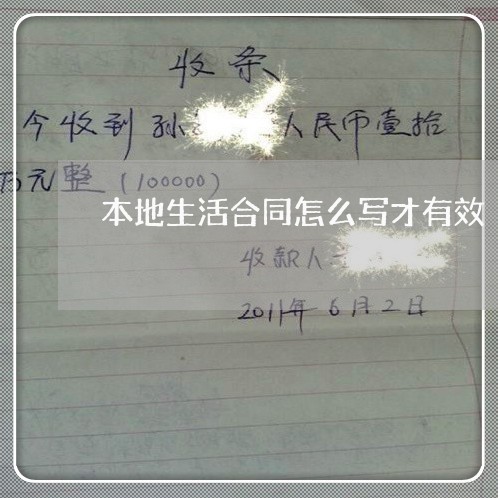 收条
今收到孙 人民币壹拾
万元整（100000）
本地生活合同怎么写才有效
收款人
2011年6月2日